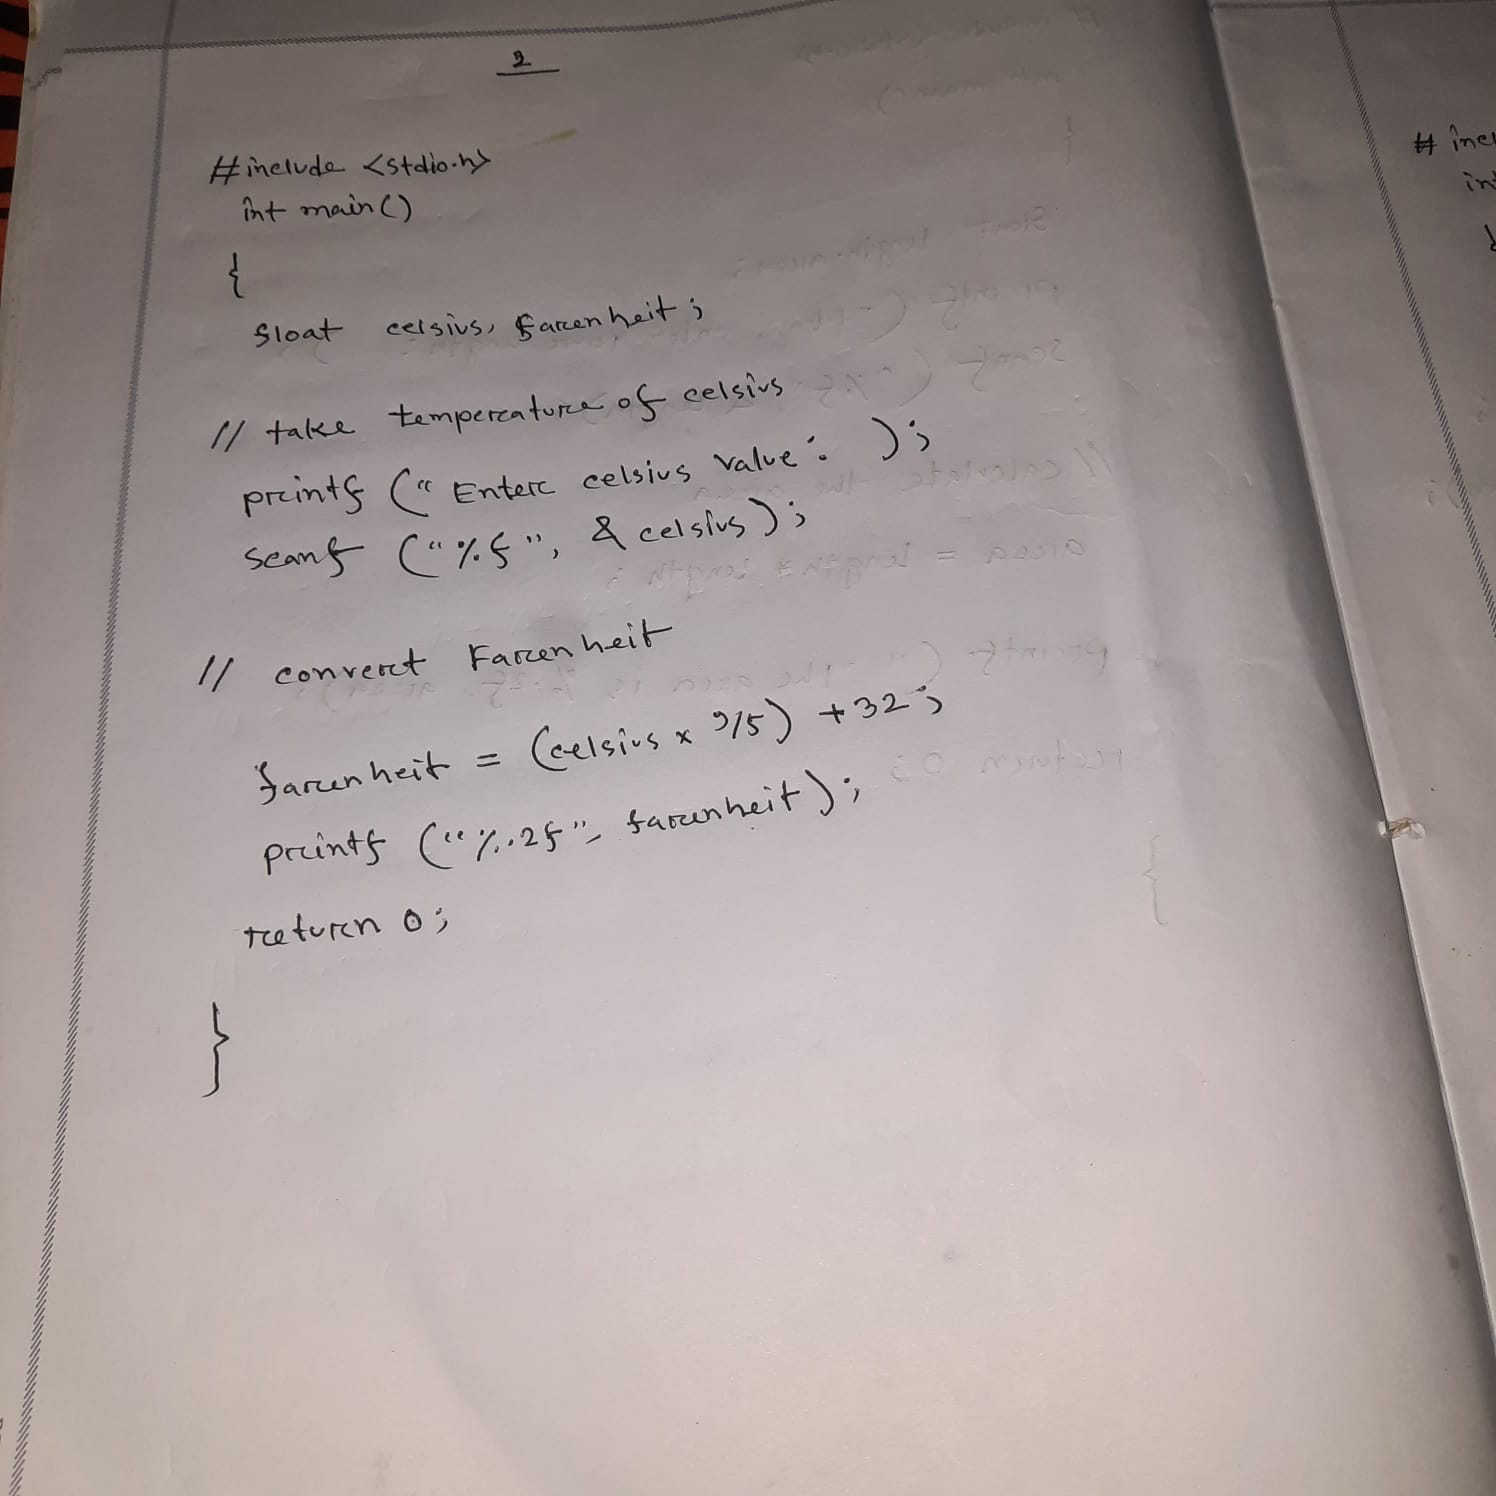 2
#include <stdio.h>
int main()
{
float celsius, farenheit;
// take temperature of celsius
printf (" Enter celsius value: );
scanf ("%f", & celsius);
// convert Farenheit
farenheit = (celsius x 9/5) +32;
printf ("%.2f", farenheit);
return 0;
}
# inc
int